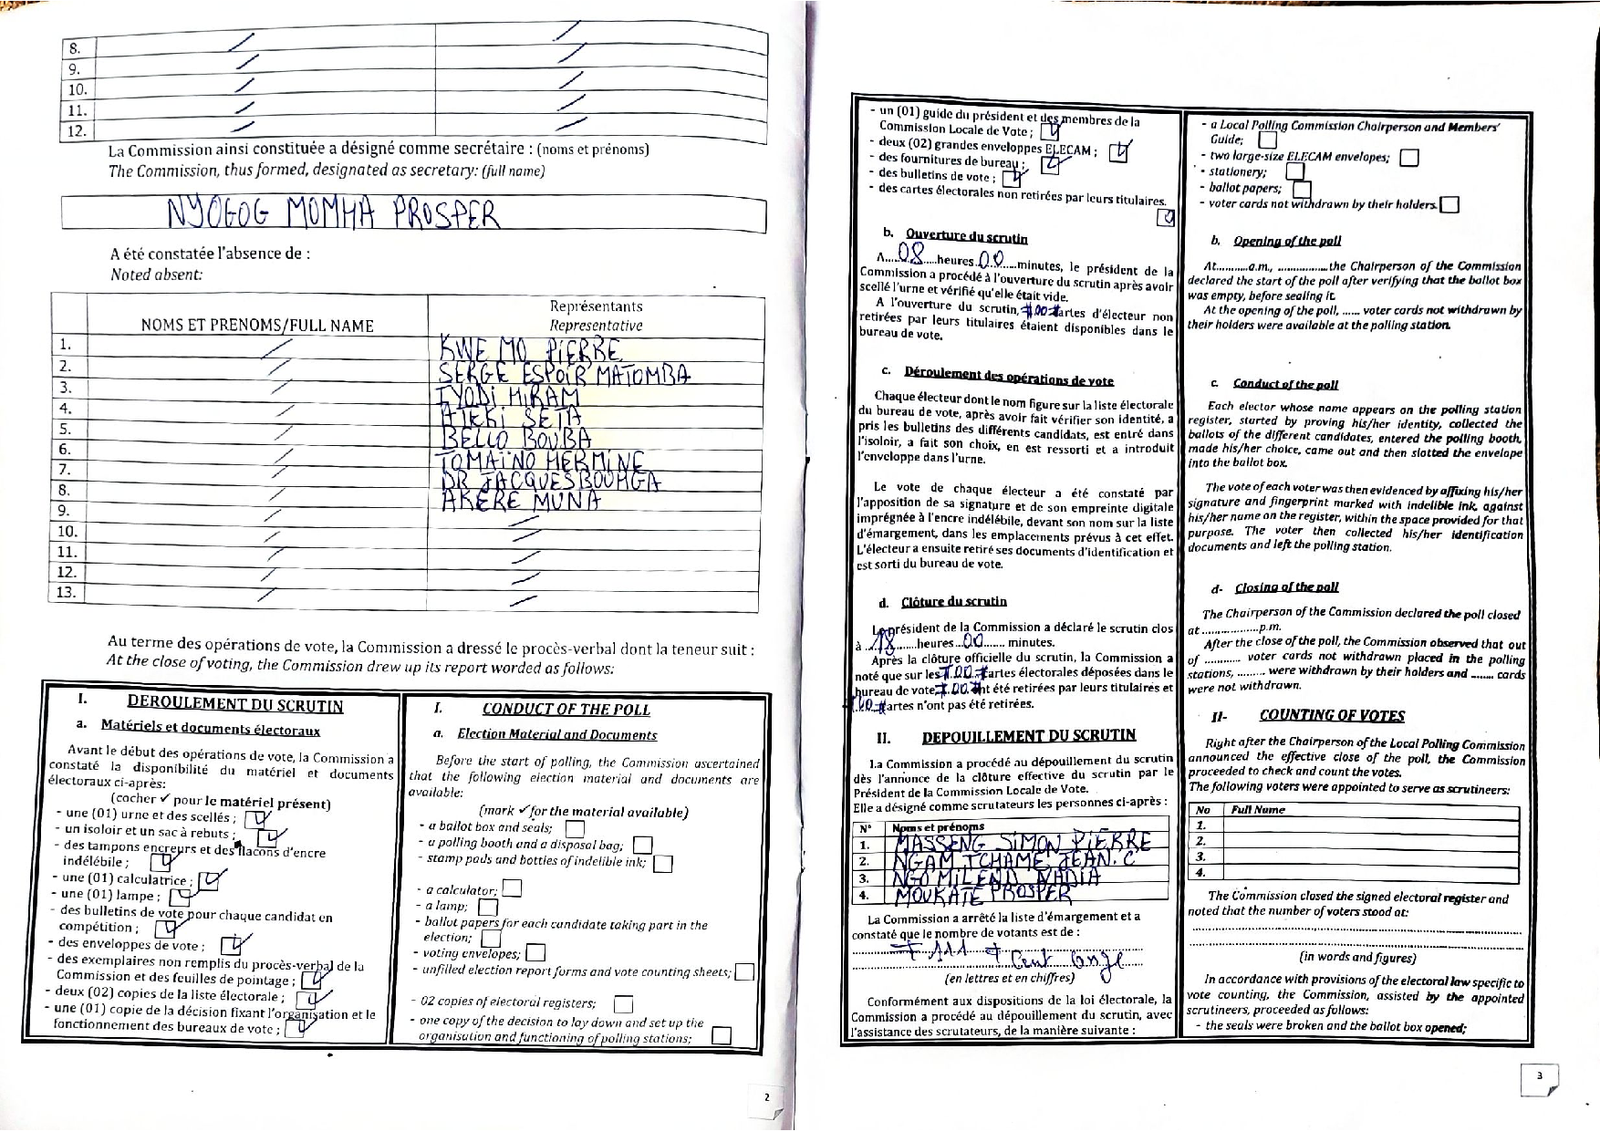 8.
9.
10.
11.
12.
La Commission ainsi constituée a désigné comme secrétaire : (noms et prénoms)
The Commission, thus formed, designated as secretary: (full name)
NYOGOG MOMHA PROSPER
A été constatée l'absence de :
Noted absent:
NOMS ET PRENOMS/FULL NAME
Représentants
Representative
1. KWE MO PIERRE
2. SERGE ESPOIR MATOMBA
3. EYODI HIRAM
4. ATEKI SETA
5. BELLO BOUBA
6. TOMAINO HERMINE
7. DR JACQUES BOUHGA
8. AKERE MUNA
9.
10.
11.
12.
13.
Au terme des opérations de vote, la Commission a dressé le procès-verbal dont la teneur suit :
At the close of voting, the Commission drew up its report worded as follows:
I. DEROULEMENT DU SCRUTIN
a. Matériels et documents électoraux
Avant le début des opérations de vote, la Commission a
constaté la disponibilité du matériel et documents
électoraux ci-après:
(cocher ✓ pour le matériel présent)
- une (01) urne et des scellés ;
- un isoloir et un sac à rebuts ;
- des tampons encreurs et des flacons d'encre
indélébile ;
- une (01) calculatrice ;
- une (01) lampe ;
- des bulletins de vote pour chaque candidat en
compétition ;
- des enveloppes de vote ;
- des exemplaires non remplis du procès-verbal de la
Commission et des feuilles de pointage ;
- deux (02) copies de la liste électorale ;
- une (01) copie de la décision fixant l'organisation et le
fonctionnement des bureaux de vote ;
I. CONDUCT OF THE POLL
a. Election Material and Documents
Before the start of polling, the Commission ascertained
that the following election material and documents are
available:
(mark ✓ for the material available)
- a ballot box and seals;
- a polling booth and a disposal bag;
- stamp pads and bottles of indelible ink;
- a calculator;
- a lamp;
- ballot papers for each candidate taking part in the
election;
- voting envelopes;
- unfilled election report forms and vote counting sheets;
- 02 copies of electoral registers;
- one copy of the decision to lay down and set up the
organisation and functioning of polling stations;
2
- un (01) guide du président et des membres de la
Commission Locale de Vote ;
- deux (02) grandes enveloppes ELECAM ;
- des fournitures de bureau ;
- des bulletins de vote ;
- des cartes électorales non retirées par leurs titulaires.
b. Ouverture du scrutin
A....08....heures.00....minutes, le président de la
Commission a procédé à l'ouverture du scrutin après avoir
scellé l'urne et vérifié qu'elle était vide.
A l'ouverture du scrutin, #00# cartes d'électeur non
retirées par leurs titulaires étaient disponibles dans le
bureau de vote.
c. Déroulement des opérations de vote
Chaque électeur dont le nom figure sur la liste électorale
du bureau de vote, après avoir fait vérifier son identité, a
pris les bulletins des différents candidats, est entré dans
l'isoloir, a fait son choix, en est ressorti et a introduit
l'enveloppe dans l'urne.
Le vote de chaque électeur a été constaté par
l'apposition de sa signature et de son empreinte digitale
imprégnée à l'encre indélébile, devant son nom sur la liste
d'émargement, dans les emplacements prévus à cet effet.
L'électeur a ensuite retiré ses documents d'identification et
est sorti du bureau de vote.
d. Clôture du scrutin
Le président de la Commission a déclaré le scrutin clos
à .18....heures..00.... minutes.
Après la clôture officielle du scrutin, la Commission a
noté que sur les #00# cartes électorales déposées dans le
bureau de vote, #00# ont été retirées par leurs titulaires et
#00# cartes n'ont pas été retirées.
II. DEPOUILLEMENT DU SCRUTIN
La Commission a procédé au dépouillement du scrutin
dès l'annonce de la clôture effective du scrutin par le
Président de la Commission Locale de Vote.
Elle a désigné comme scrutateurs les personnes ci-après :
N° Noms et prénoms
1. MASSENG SIMON PIERRE
2. NGAM TCHAME JEAN. C
3. NGO MILEND NADIA
4. MOUKATE PROSPER
La Commission a arrêté la liste d'émargement et a
constaté que le nombre de votants est de :
# 111 # Cent onze
(en lettres et en chiffres)
Conformément aux dispositions de la loi électorale, la
Commission a procédé au dépouillement du scrutin, avec
l'assistance des scrutateurs, de la manière suivante :
- a Local Polling Commission Chairperson and Members'
Guide;
- two large-size ELECAM envelopes;
- stationery;
- ballot papers;
- voter cards not withdrawn by their holders.
b. Opening of the poll
At...........a.m., .................the Chairperson of the Commission
declared the start of the poll after verifying that the ballot box
was empty, before sealing it.
At the opening of the poll, ...... voter cards not withdrawn by
their holders were available at the polling station.
c. Conduct of the poll
Each elector whose name appears on the polling station
register, started by proving his/her identity, collected the
ballots of the different candidates, entered the polling booth,
made his/her choice, came out and then slotted the envelope
into the ballot box.
The vote of each voter was then evidenced by affixing his/her
signature and fingerprint marked with indelible ink, against
his/her name on the register, within the space provided for that
purpose. The voter then collected his/her identification
documents and left the polling station.
d- Closing of the poll
The Chairperson of the Commission declared the poll closed
at ...................p.m.
After the close of the poll, the Commission observed that out
of ............ voter cards not withdrawn placed in the polling
stations, ......... were withdrawn by their holders and ....... cards
were not withdrawn.
II- COUNTING OF VOTES
Right after the Chairperson of the Local Polling Commission
announced the effective close of the poll, the Commission
proceeded to check and count the votes.
The following voters were appointed to serve as scrutineers:
No Full Name
1.
2.
3.
4.
The Commission closed the signed electoral register and
noted that the number of voters stood at:
(in words and figures)
In accordance with provisions of the electoral law specific to
vote counting, the Commission, assisted by the appointed
scrutineers, proceeded as follows:
- the seals were broken and the ballot box opened;
3